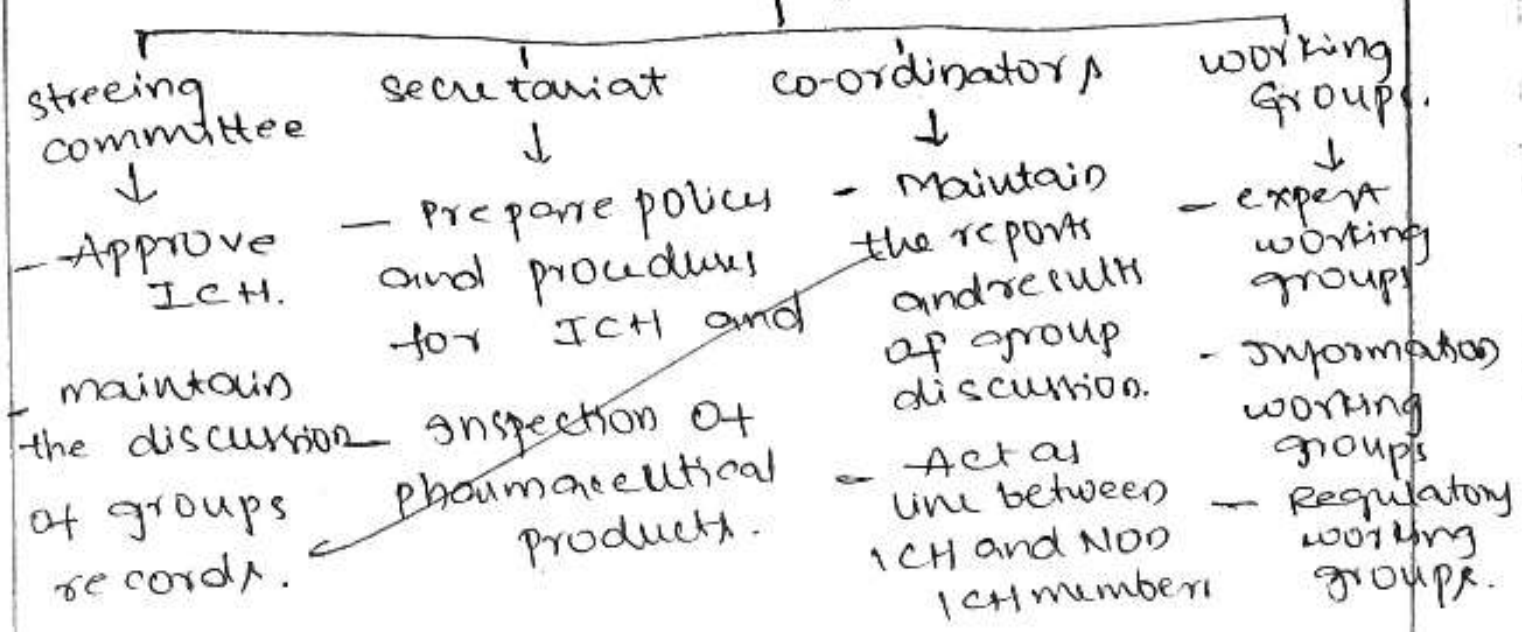 streeing
committee
↓
- Approve
ICH.
- maintain
the discussion
of groups
records.
secretariat
↓
- Prepare policies
and procedures
for ICH and
- Inspection of
pharmaceutical
products.
co-ordinators
↓
- Maintain
the reports
and results
of group
discussion.
- Act as
line between
ICH and NOD
ICH members
working
Groups.
↓
- expert
working
groups
- Information
working
groups
- Regulatory
working
groups.